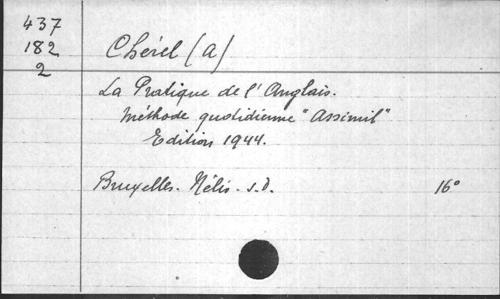 437
182
2
Chérel (A)
La Pratique de l'Anglais.
Méthode quotidienne "Assimil"
Edition 1944.
Bruxelles. Nélis. s.d. 16°